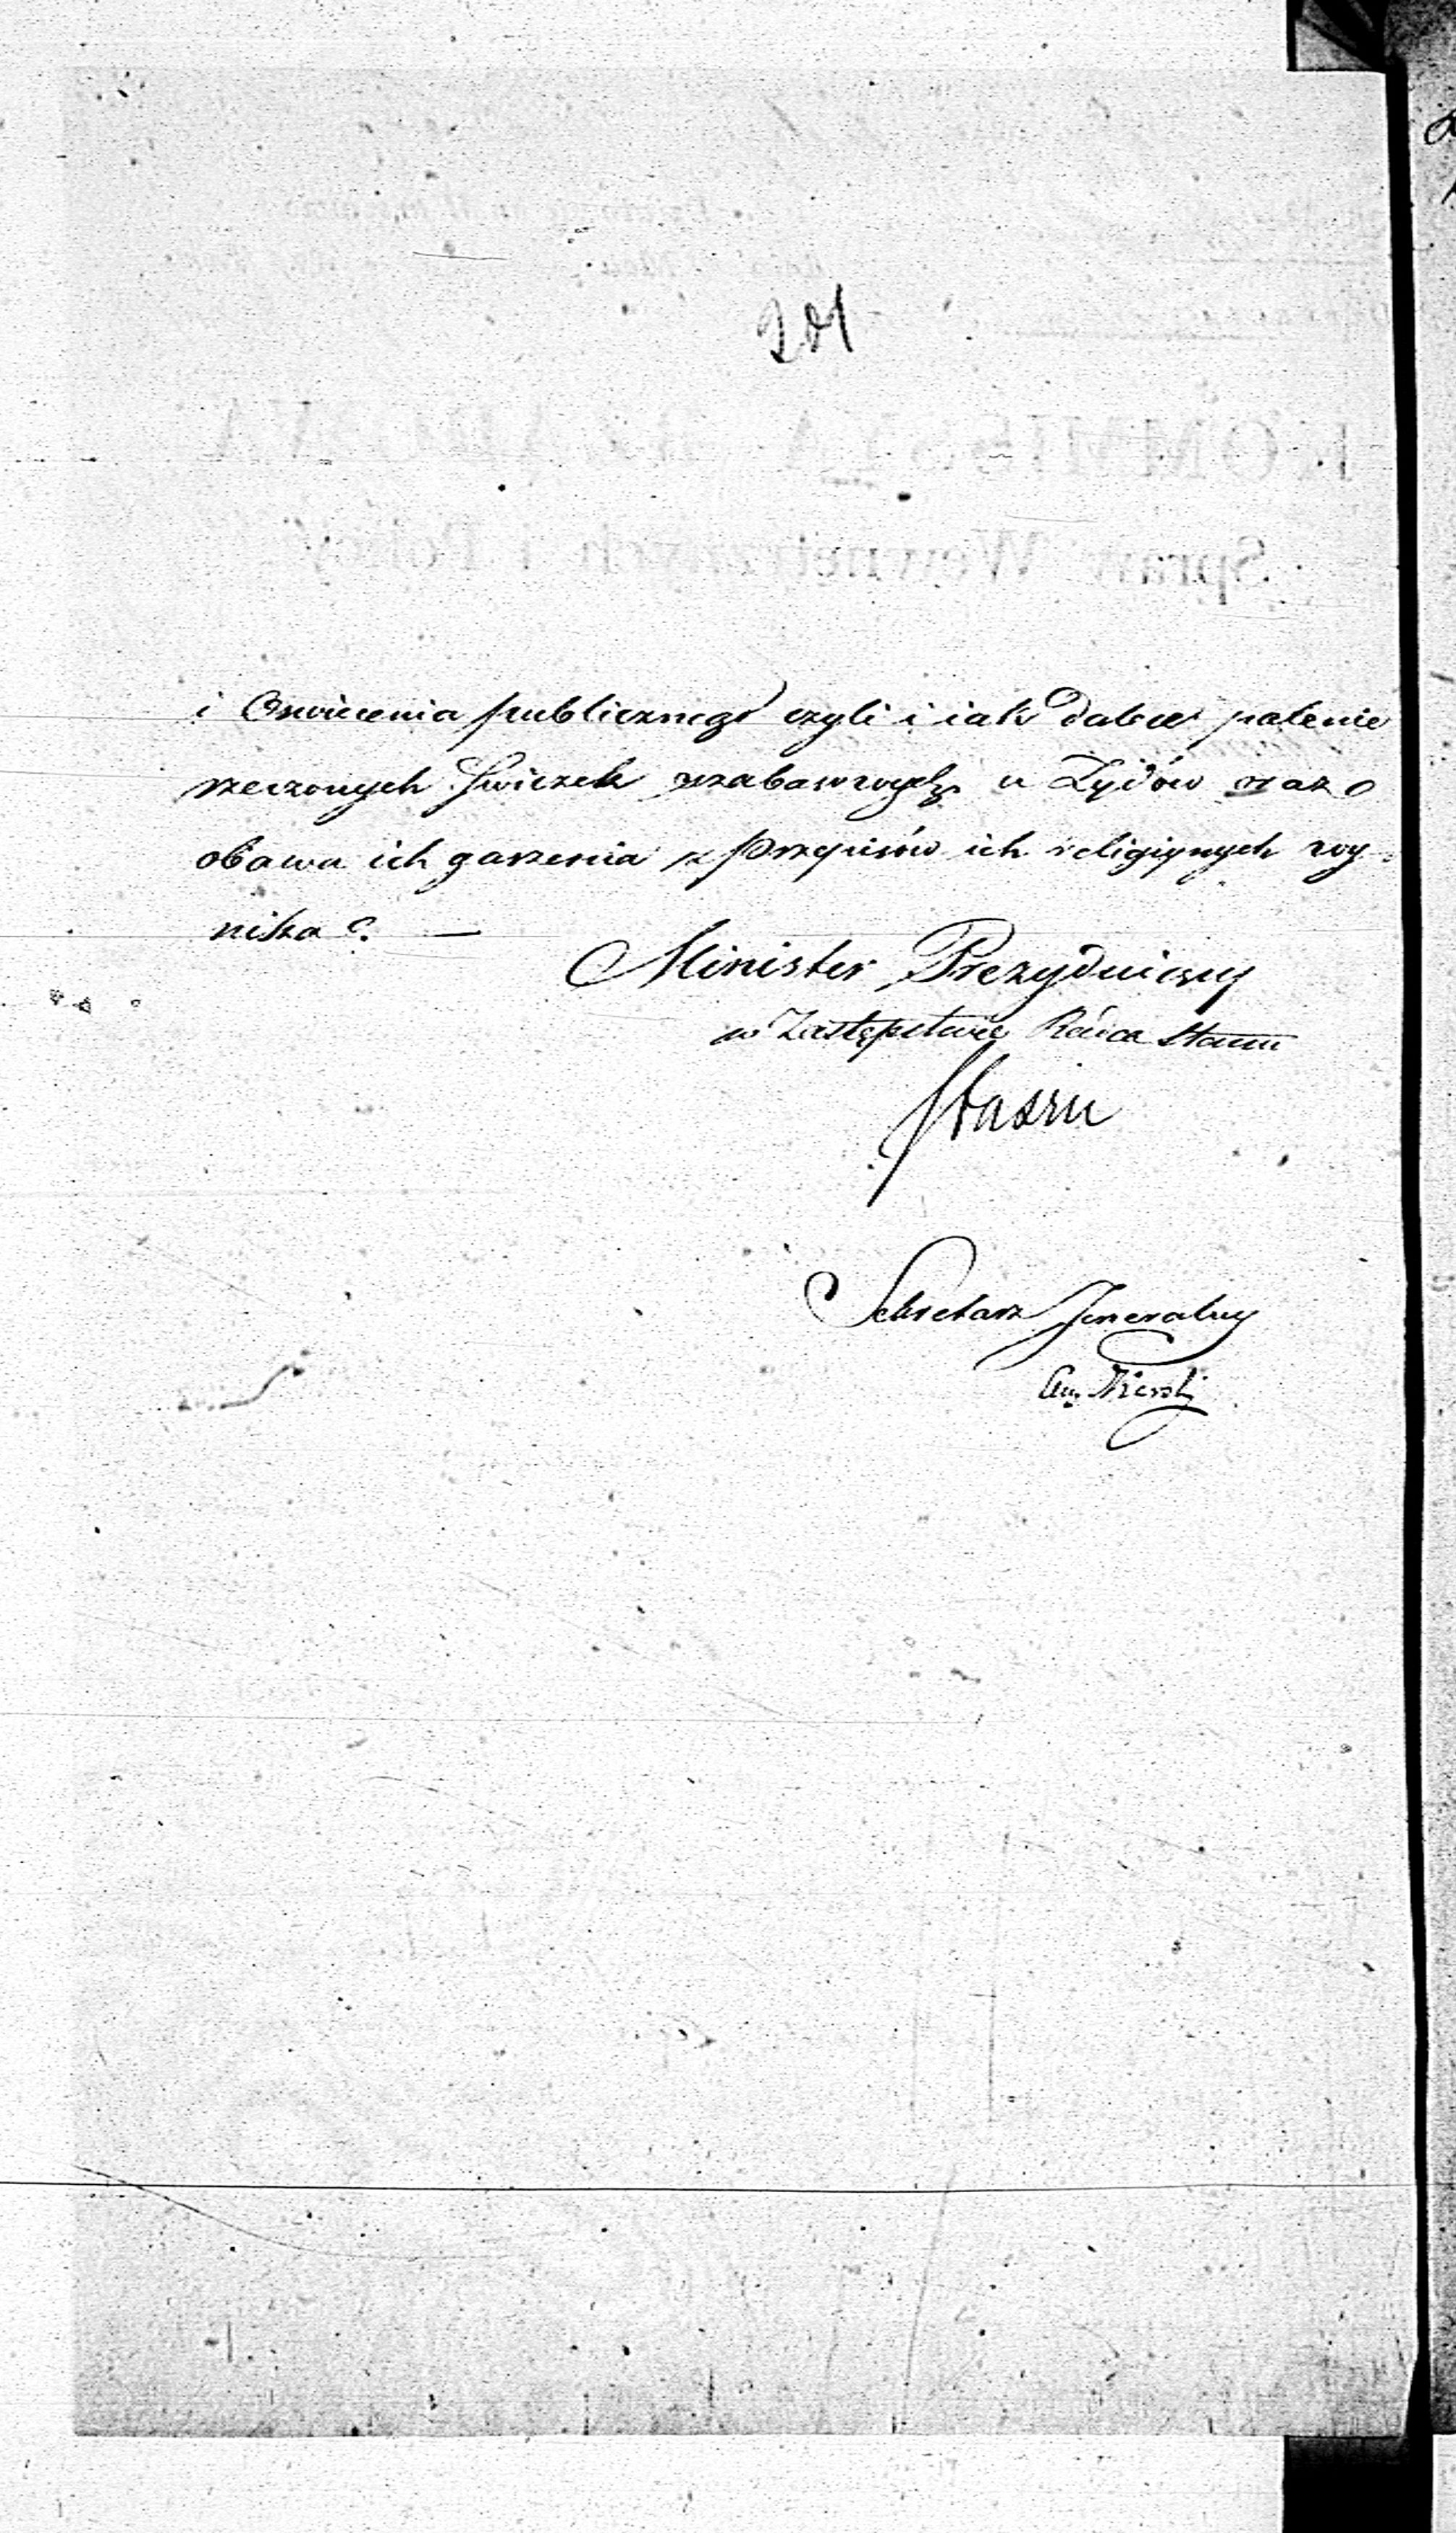 201
i Oswiecenia publicznego czyli i iak dalece palenie
rzeczonych Swiczek szabasowych u Żydów oraz
obawa ich gaszenia z Przepisów ich religijnych wy-
nika?. —
Minister Prezyduiący
w Zastępstwie Radca Stanu
Staszic
Sekretarz Jeneralny